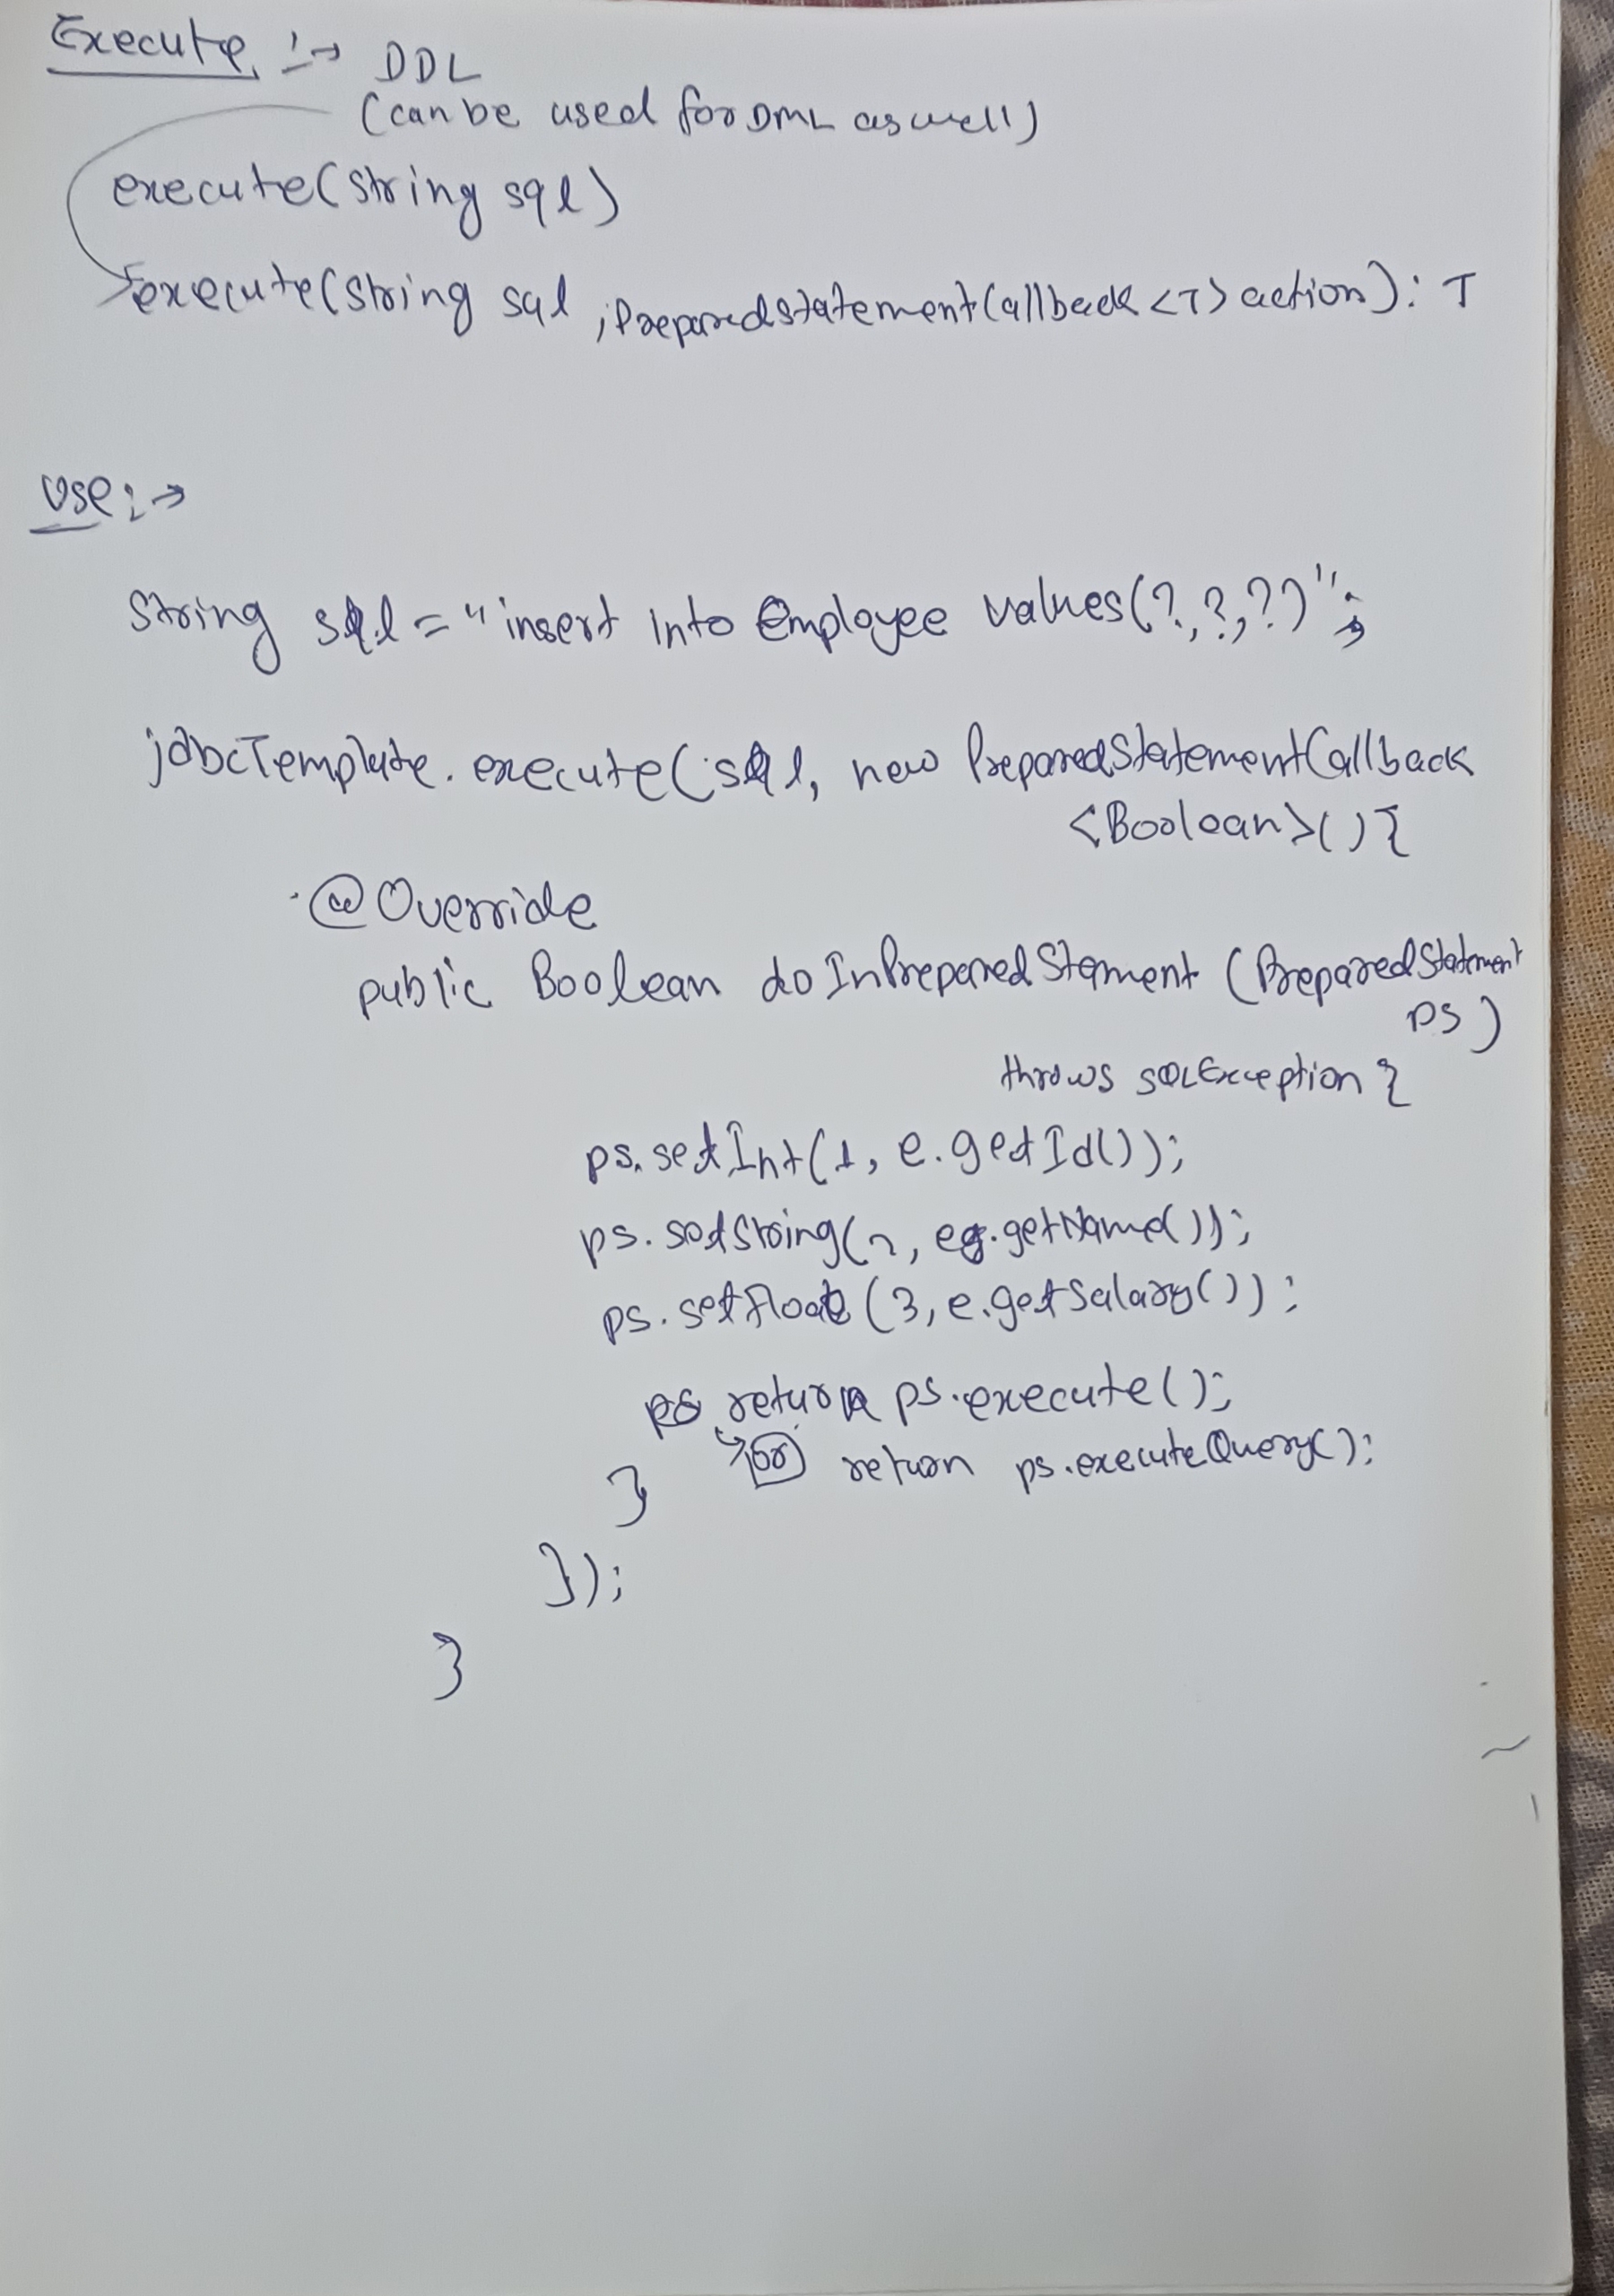 Execute :→ DDL
(can be used for DML as well)
execute(String sql)
execute(String sql, PreparedStatementCallback<T> action): T
Use :→
String sql = "insert into Employee values(?,?,?)";
jdbcTemplate.execute(sql, new PreparedStatementCallback
<Boolean>(){
@Override
public Boolean doInPreparedStament (PreparedStatement
ps)
throws SQLException {
ps.setInt(1, e.getId());
ps.setString(2, e.getName());
ps.setFloat(3, e.getSalary());
return ps.execute();
or return ps.executeQuery();
}
});
}